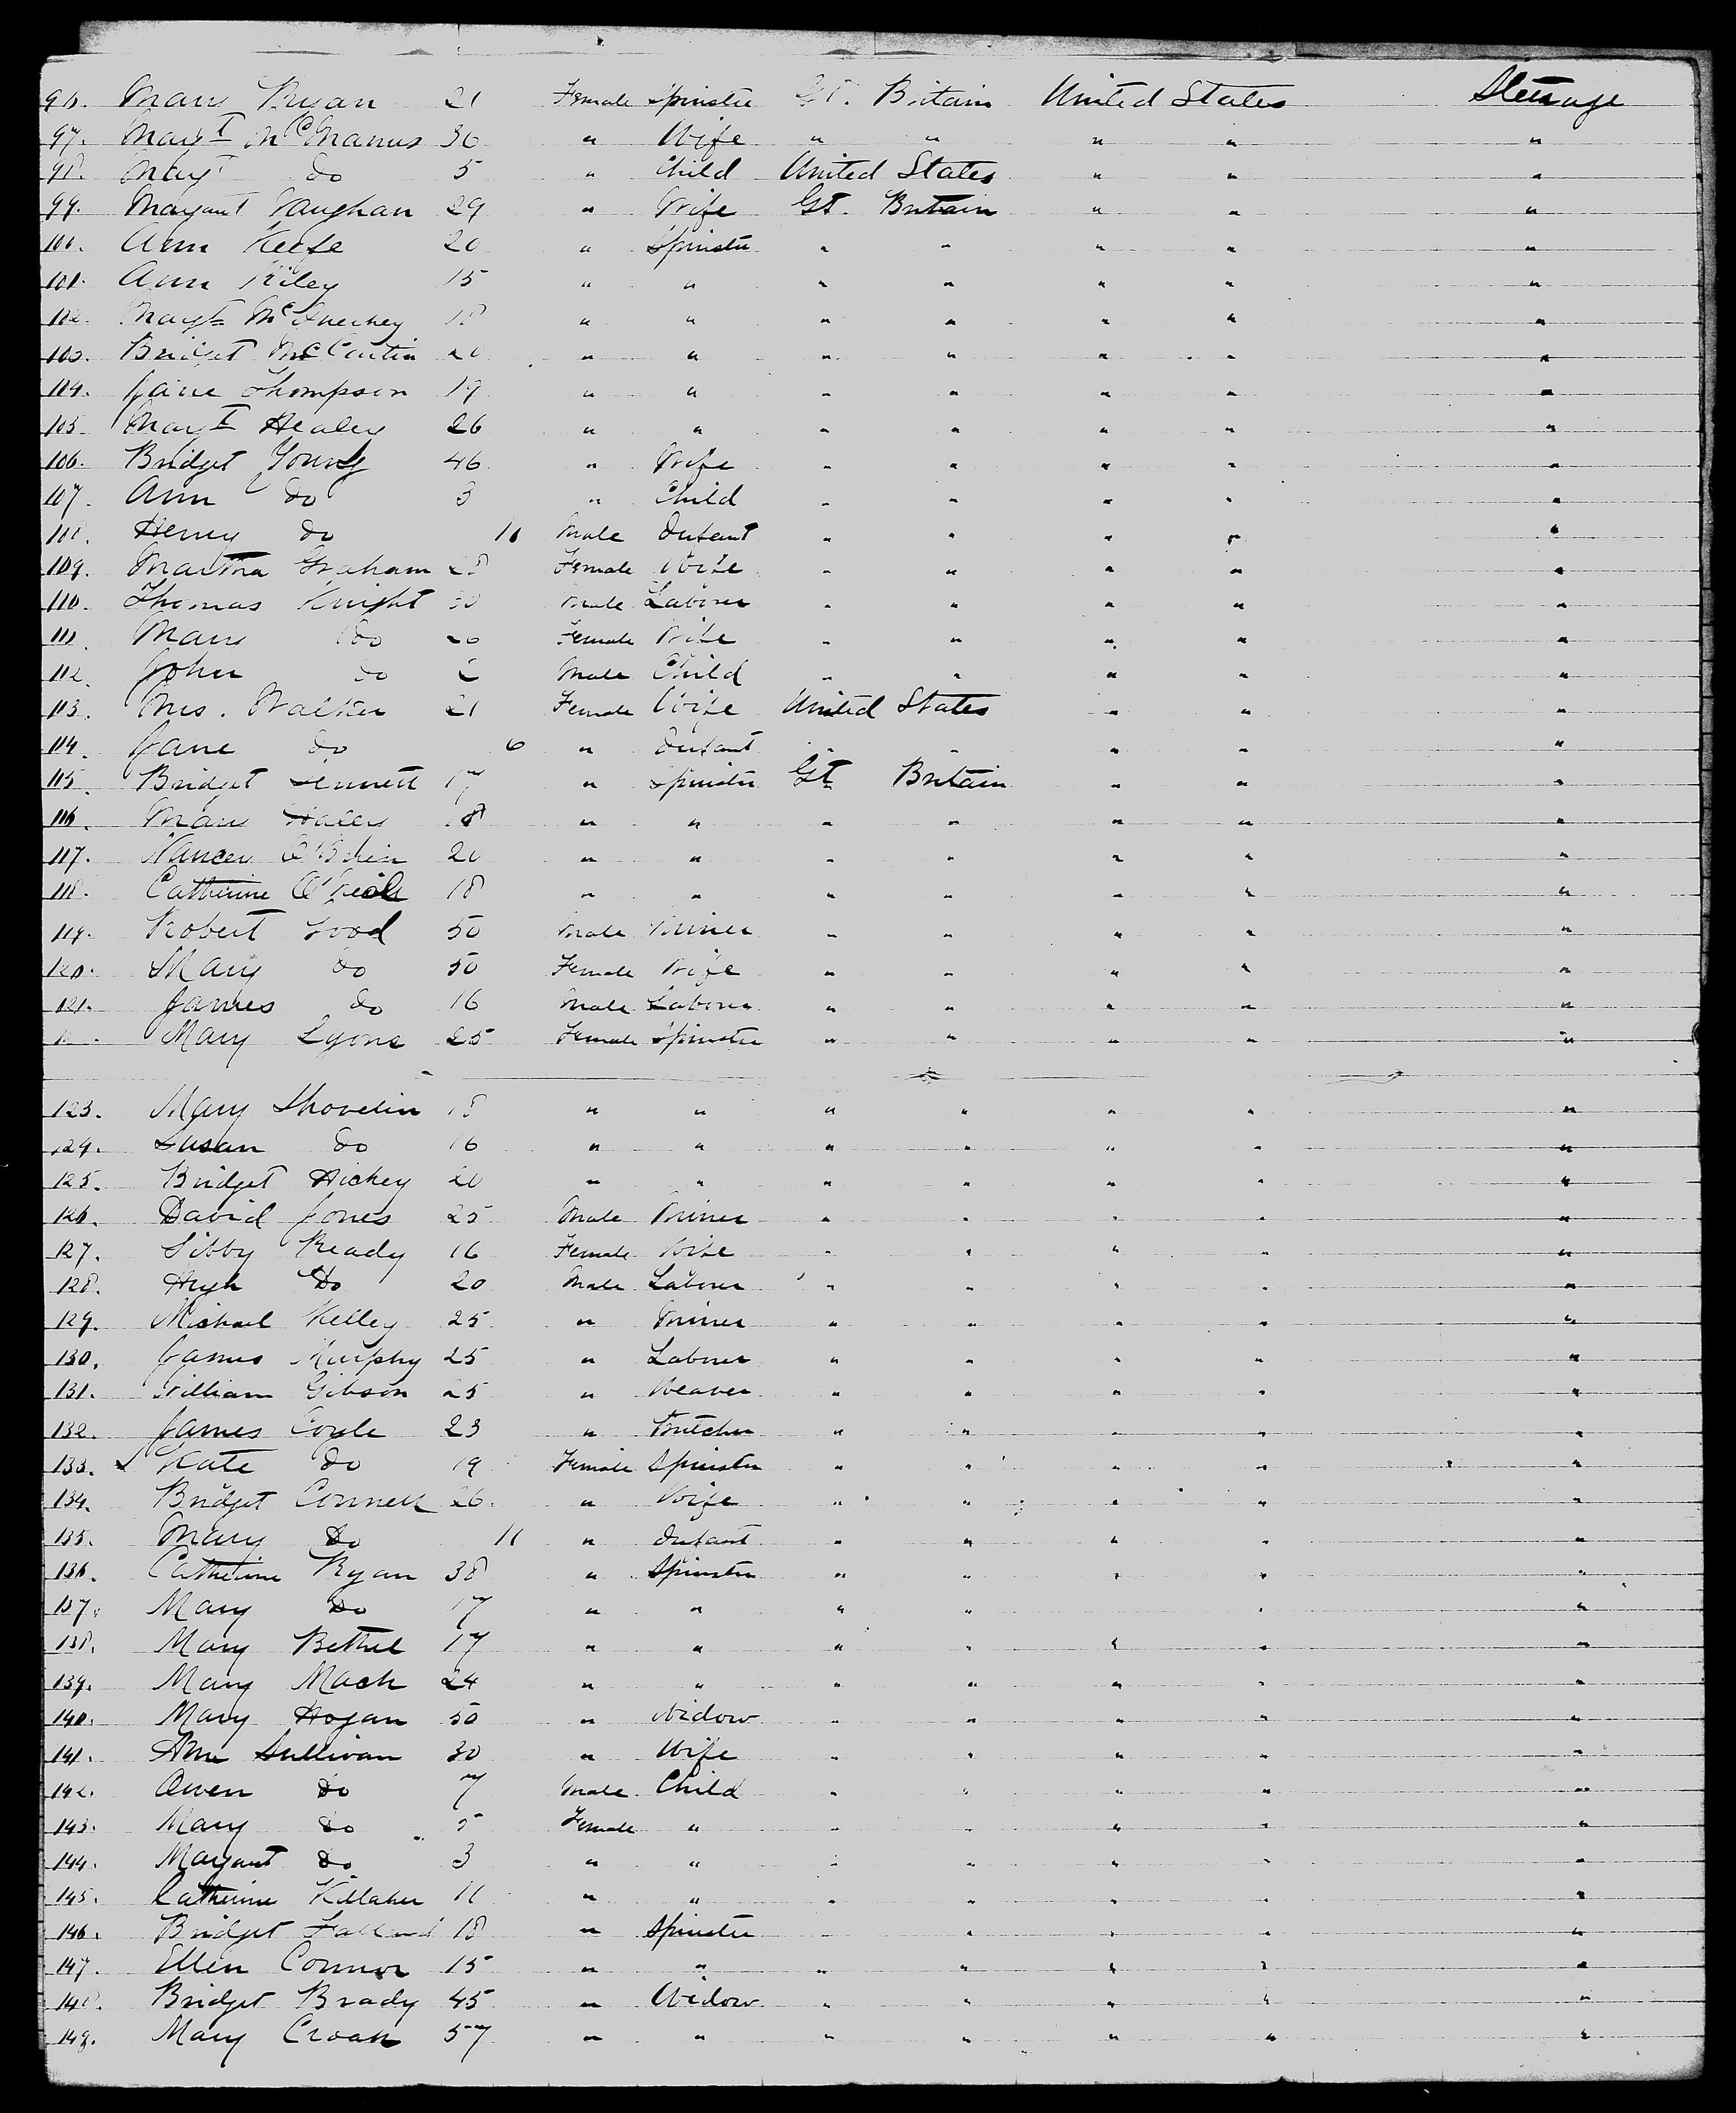 96. Mary Ryan 21 Female Spinster Gt. Britain United States Steerage
97. Margt McManus 36 " Wife " " " " "
98. Margt do 5 " Child United States " " "
99. Margaret Vaughan 29 " Wife Gt. Britain " " "
100. Ann Keefe 20 " Spinster " " " " "
101. Ann Riley 15 " " " " " " "
102. Margt 18 " " " " " " "
103. Bridget 20 " " " " " " "
104. Jane Thompson 19 " " " " " " "
105. Margt Healey 26 " " " " " " "
106. Bridget Young 46 " Wife " " " " "
107. Ann do 3 " Child " " " " "
108. Henry do 11 Male Infant " " " " "
109. Martha Graham 28 Female Wife " " " " "
110. Thomas Knight 30 Male Laborer " " " " "
111. Mary Do 26 Female Wife " " " " "
112. John do Male Child " " " " "
113. Mrs. Walker 21 Female Wife United States " " "
114. Jane do 6 " Infant " " " " "
115. Bridget Sennett 17 " Spinster Gt. Britain " " "
116. Mary Haley 18 " " " " " " "
117. Nancy O'Brien 20 " " " " " " "
118. Catherine 18 " " " " " " "
119. Robert Good 50 Male Miner " " " " "
120. Mary do 50 Female Wife " " " " "
121. James do 16 Male Laborer " " " " "
Mary Lyons 25 Female Spinster " " " " "
123. Mary Shovelin 18 " " " " " " "
124. Susan do 16 " " " " " " "
125. Bridget Hickey 20 " " " " " " "
126. David Jones 25 Male Miner " " " " "
127. Sibby Ready 16 Female Wife " " " " "
128. Hugh Do 20 Male Laborer " " " " "
129. Michael Kelley 25 " Miner " " " " "
130. James Murphy 25 " Laborer " " " " "
131. William Gibson 25 " Weaver " " " " "
132. James Coyle 23 " Butcher " " " " "
133. Kate Do 19 Female Spinster " " " " "
134. Bridget Connell 26. " Wife " " " " "
135. Mary Do 11 " Infant " " " " "
136. Catherine Ryan 38 " Spinster " " " " "
137. Mary Do 17 " " " " " "
138. Mary Bethel 17 " " " " " " "
139. Mary Mack 24 " " " " " " "
140. Mary Hogan 50 " Widow " " " " "
141. Ann Sullivan 30 " Wife " " " " "
142. Owen Do 7 Male Child " " " " "
143. Mary do 5 Female " " " " " "
144. Margaret do 3 " " " " " " "
145. Catherine 11 " " " " " " "
146. Bridget 18 " Spinster " " " " "
147. Ellen Connor 15 " " " " " " "
148. Bridget Brady 45 " Widow " " " " "
149. Mary Croak 57 " " " " " " "